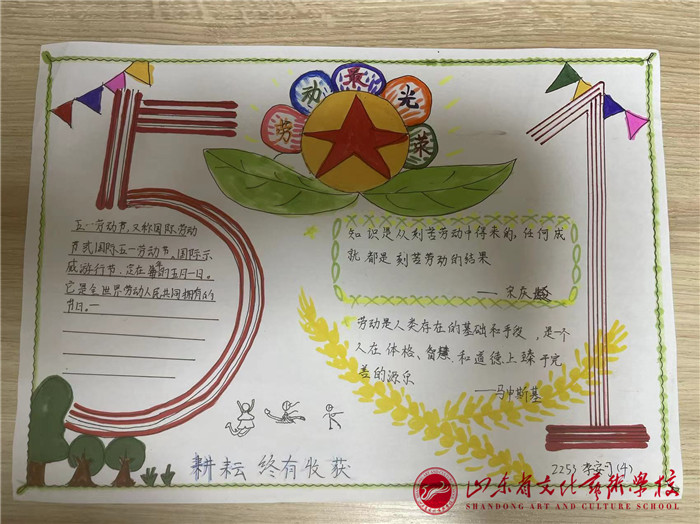 劳动最光荣
51
五一劳动节,又称国际劳动
节或国际五一劳动节、国际示
威游行节.定在每年的五月一日。
它是全世界劳动人民共同拥有的
节日。
知识是从刻苦劳动中得来的,任何成
就都是刻苦劳动的结果
——宋庆龄
劳动是人类存在的基础和手段,是一个
人在体格、智慧和道德上臻于完
善的源乐
——马申斯基
耕耘 终有收获
山东省文化艺术学校
SHANDONG ART AND CULTURE SCHOOL